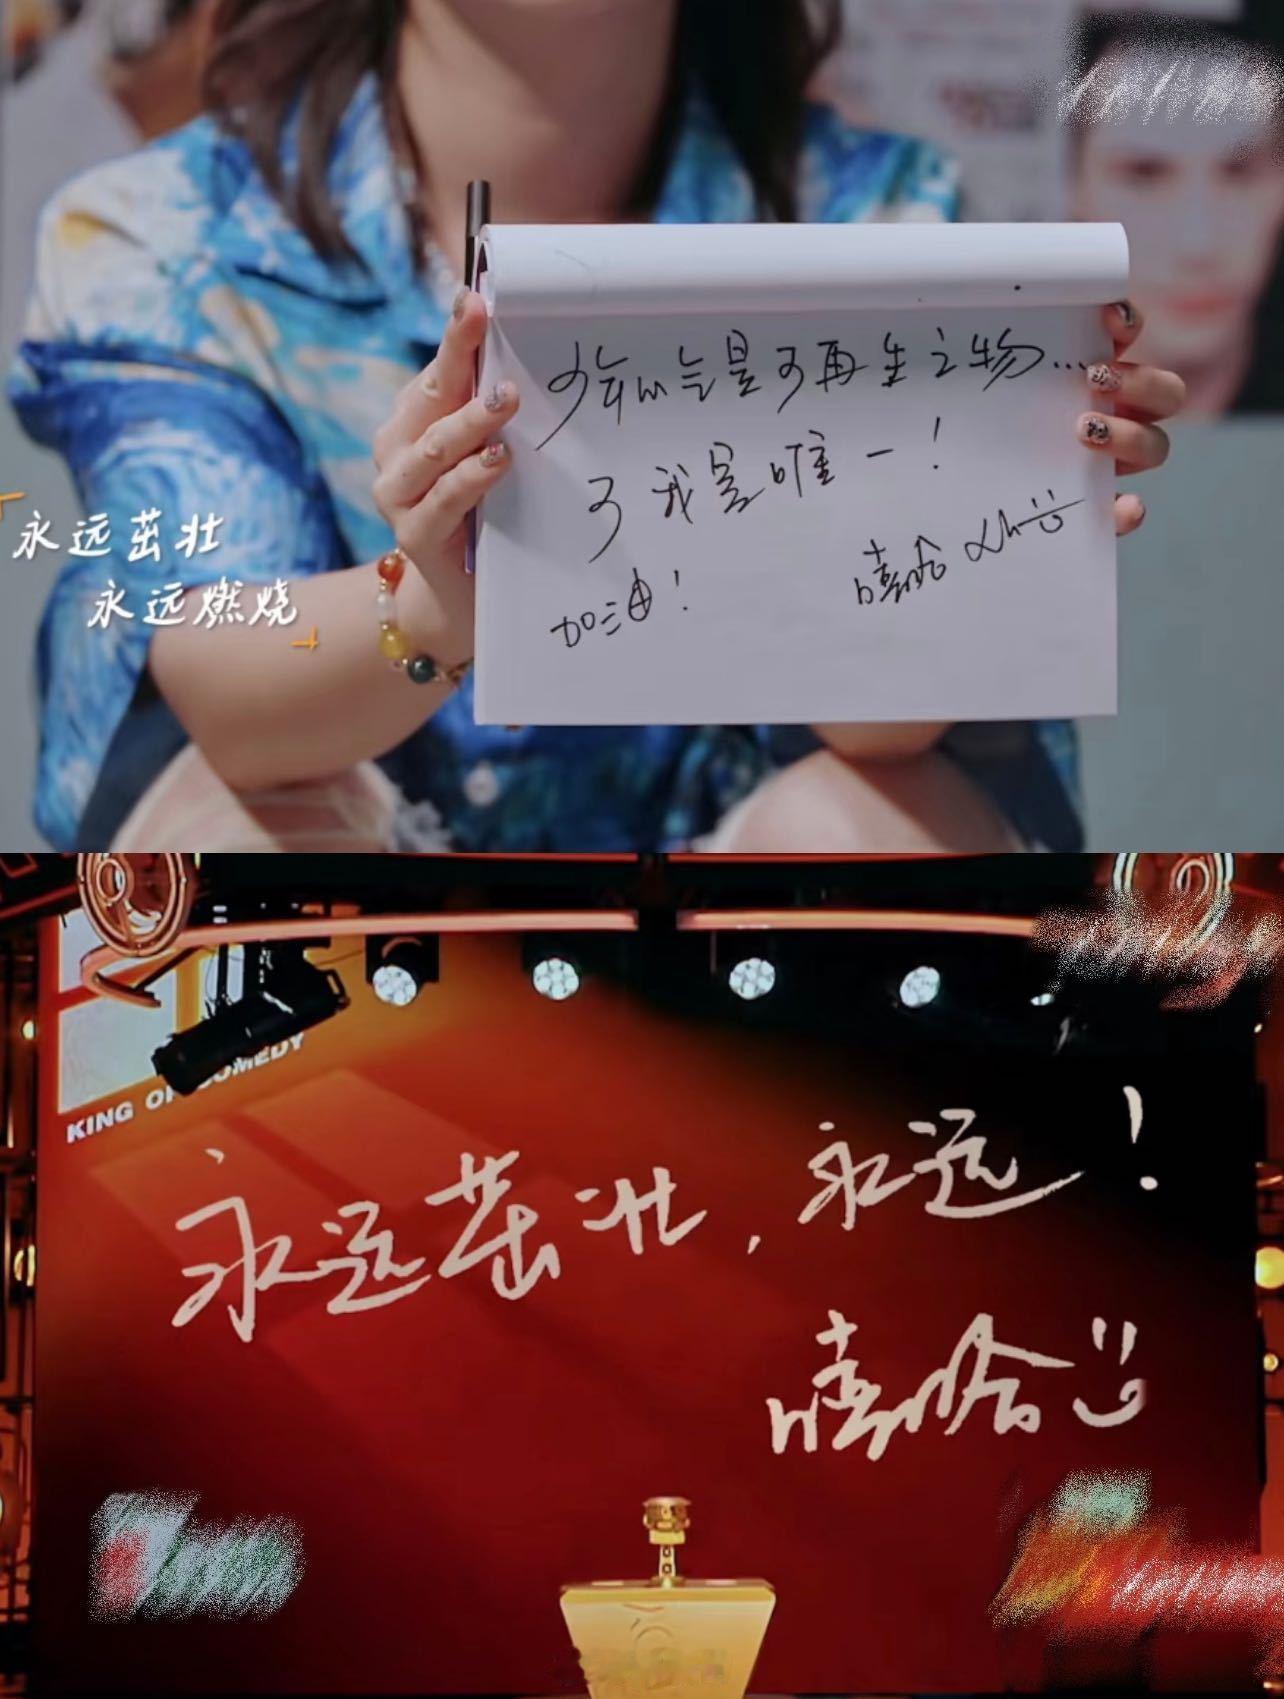 少年心气是可再生之物...
可我是唯一!
加油!
嘻哈
永远茁壮
永远燃烧
KING OF COMEDY
永远茁壮,永远!
嘻哈